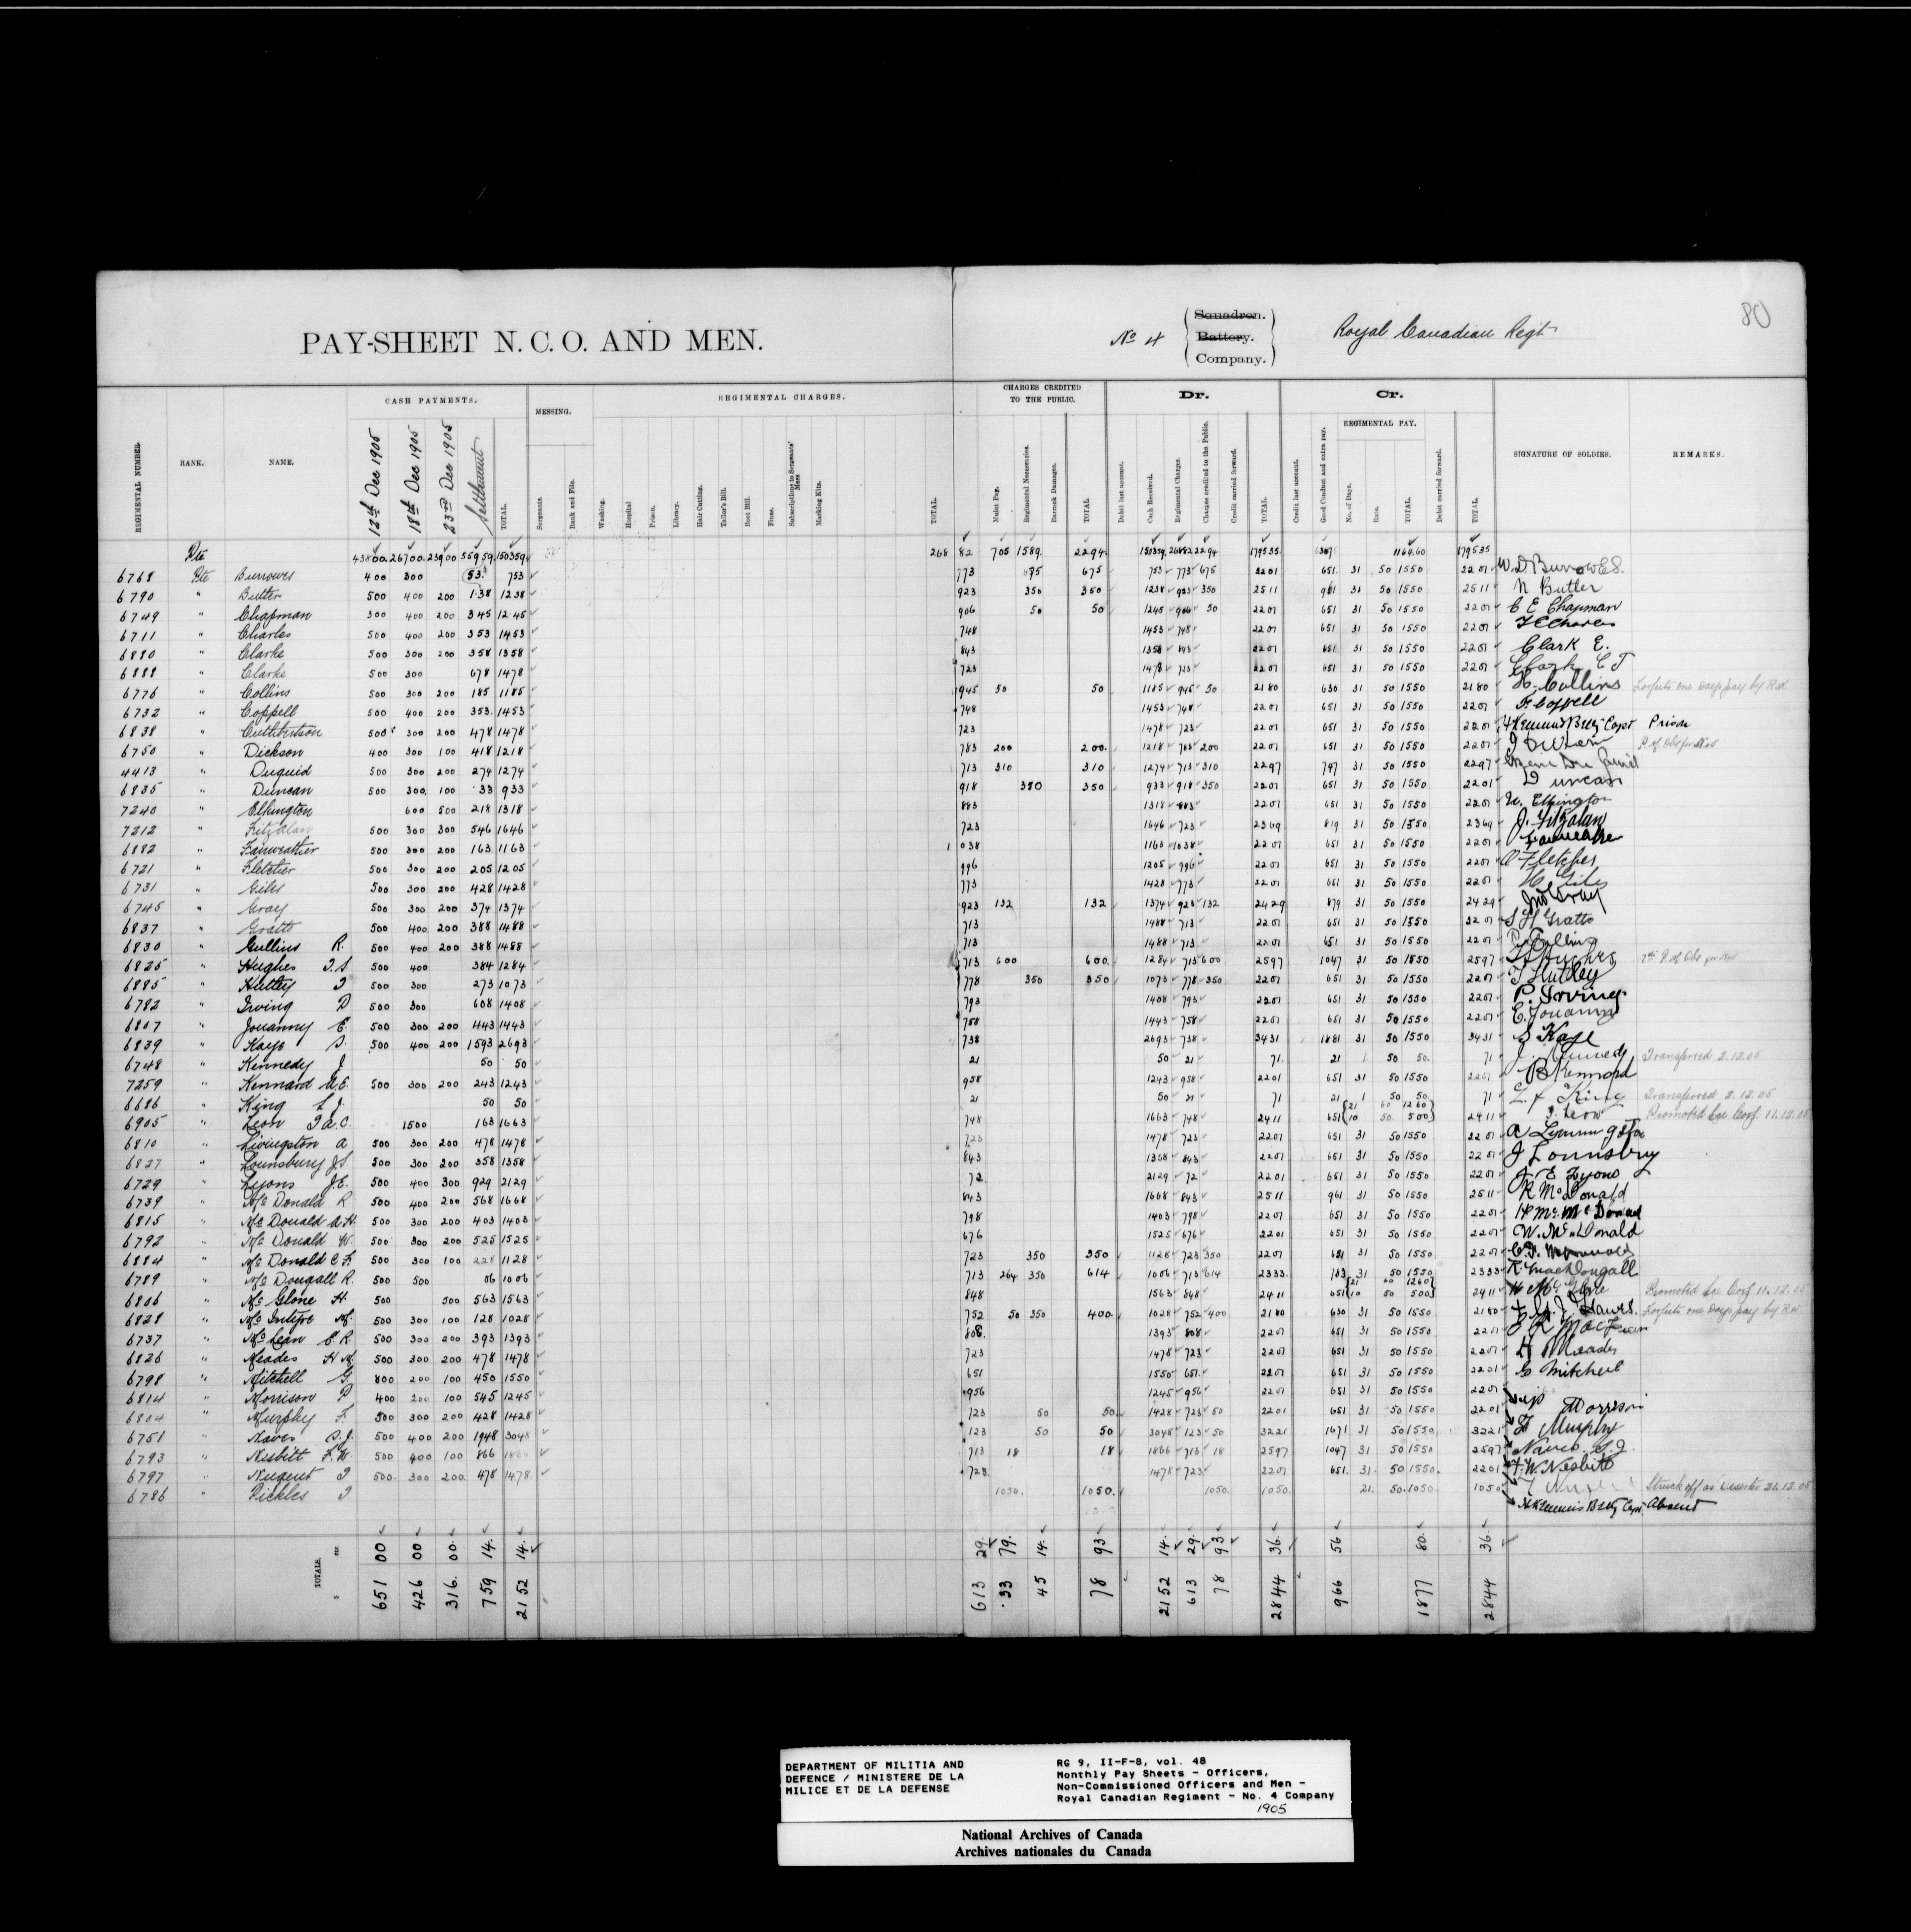 80
PAY-SHEET N.C.O. AND MEN.
No 4
Squadron.
Battery.
Company.
Royal Canadian Regt
REGIMENTAL NUMBER. RANK. NAME. CASH PAYMENTS. MESSING. REGIMENTAL CHARGES. CHARGES CREDITED TO THE PUBLIC. Dr. Cr. REGIMENTAL PAY. SIGNATURE OF SOLDIER. REMARKS.
12th Dec 1905 18th Dec 1905 23rd Dec 1905 Settlement TOTAL. Sergeants. Rank and File. Washing. Hospital. Prison. Library. Hair Cutting. Tailor's Bill. Boot Bill. Fines. Subscriptions to Sergeants' Mess Marking Kits. TOTAL. Mulct Pay. Regimental Necessaries. Barrack Damages. TOTAL Debit last account. Cash Received. Regimental Charges. Charges credited to the Public. Credit carried forward. TOTAL. Credit last account. Good Conduct and extra pay. No. of Days. Rate. TOTAL. Debit carried forward. TOTAL.
Pte 43800 26700 23900 55959 150359 268 82 705 1589 2294 150359 26882 2294 179535 1164.60 179535
6768 Pte Burrowes 400 300 53 753 773 675 675 753 773 675 2201 651 31 50 1550 2201 W. D Burrowes
6790 " Butler 500 400 200 1.38 1238 923 350 350 1238 923 350 2511 961 31 50 1550 2511 N Butler
6749 " Chapman 300 400 200 345 1245 906 50 50 1245 906 50 2201 651 31 50 1550 2201 C E Chapman
6711 " Charles 500 400 200 353 1453 748 1453 748 2201 651 31 50 1550 2201
6880 " Clarke 500 300 200 358 1358 843 1358 843 2201 651 31 50 1550 2201 Clark E.
6888 " Clarke 500 300 678 1478 723 1478 723 2201 651 31 50 1550 2201
6776 " Collins 500 300 200 185 1185 945 50 50 1185 945 50 2180 630 31 50 1550 2180 H. Collins Forfeits one days pay by R.W.
6732 " Coppell 500 400 200 353 1453 748 1453 748 2201 651 31 50 1550 2201 F. Coppell
6838 " Cuthbertson 500 300 200 478 1478 723 1478 723 2201 651 31 50 1550 2201 Capt Prison
6750 " Dickson 400 300 100 418 1218 783 200 200 1218 783 200 2201 651 31 50 1550 2201
4413 " Duguid 500 300 200 274 1274 713 310 310 1274 713 310 2297 747 31 50 1550 2297
6835 " Duncan 500 300 100 33 933 918 350 350 933 918 350 2201 651 31 50 1550 2201 Duncan
7240 " Elkington 600 500 218 1318 883 1318 883 2201 651 31 50 1550 2201 Elkington
7212 " Fitzalan 500 300 300 546 1646 723 1646 723 2369 819 31 50 1550 2369 J. Fitzalan
6882 " Fairweather 500 300 200 163 1163 1038 1163 1038 2201 651 31 50 1550 2201 Fairweather
6721 " Fletcher 500 300 200 205 1205 996 1205 996 2201 651 31 50 1550 2201 Fletcher
6731 " Giles 500 300 200 428 1428 773 1428 773 2201 651 31 50 1550 2201 H Giles
6745 " Gray 500 300 200 374 1374 923 132 132 1374 923 132 2429 879 31 50 1550 2429 Jno Gray
6837 " Gratto 500 400 200 388 1488 713 1488 713 2201 651 31 50 1550 2201 Gratto
6830 " Gullins R. 500 400 200 388 1488 713 1488 713 2201 651 31 50 1550 2201
6825 " Hughes T.S. 500 400 384 1284 713 600 600 1284 713 600 2597 1047 31 50 1550 2597 Hughes
6885 " Hutley T 500 300 273 1073 778 350 350 1073 778 350 2201 651 31 50 1550 2201 T Hutley
6782 " Irving P 500 300 608 1408 793 1408 793 2201 651 31 50 1550 2201 P. Irving
6807 " Jouanny E. 500 300 200 443 1443 758 1443 758 2201 651 31 50 1550 2201 E. Jouanny
6839 " Kaye S. 500 400 200 1593 2693 738 2693 738 3431 1881 31 50 1550 3431 S Kaye
6748 " Kennedy J 50 50 21 50 21 71 21 1 50 50 71 J. Kennedy Transferred 2.12.05
7259 " Kennard A.E. 500 300 200 243 1243 958 1243 958 2201 651 31 50 1550 2201 Kennard
6686 " King L J. 50 50 21 50 21 71 21 1 50 50 71 King Transferred 2.12.05
6905 " Leon T a.C. 1500 163 1663 748 1663 748 2411 651 {21 60 1260 10 50 500} 2411 Promoted Lce Corp. 11.12.05
6810 " Livingston A 500 300 200 478 1478 723 1478 723 2201 651 31 50 1550 2201
6827 " Lounsbury J S. 500 300 200 358 1358 843 1358 843 2201 651 31 50 1550 2201 J Lounsbury
6729 " Lyons J.E. 500 400 300 929 2129 72 2129 72 2201 651 31 50 1550 2201 J. E Lyons
6739 " McDonald R 500 400 200 568 1668 843 1668 843 2511 961 31 50 1550 2511 R McDonald
6815 " McDonald A H. 500 300 200 403 1403 798 1403 798 2201 651 31 50 1550 2201
6792 " McDonald W. 500 300 200 525 1525 676 1525 676 2201 651 31 50 1550 2201 W. McDonald
6884 " McDonald C F. 500 300 100 228 1128 723 350 350 1128 723 350 2201 651 31 50 1550 2201
6789 " McDougall R. 500 500 06 1006 713 264 350 614 1006 713 614 2333 783 31 50 1550 2333 R. MacDougall
6806 " McGlone H. 500 500 563 1563 848 1563 848 2411 651 {21 60 1260 10 50 500} 2411 Promoted Lce Corp 11.12.05
6828 " McIntyre M. 500 300 100 128 1028 752 50 350 400 1028 752 400 2180 630 31 50 1550 2180 Forfeits one days pay by R.W.
6737 " McLean E. R. 500 300 200 393 1393 808 1393 808 2201 651 31 50 1550 2201
6826 " Meades H M. 500 300 200 478 1478 723 1478 723 2201 651 31 50 1550 2201 H Meades
6798 " Mitchell G. 800 200 100 450 1550 651 1550 651 2201 651 31 50 1550 2201 G Mitchell
6814 " Morrison P 400 200 100 545 1245 956 1245 956 2201 651 31 50 1550 2201 Morrison
6804 " Murphy F. 500 300 200 428 1428 723 50 50 1428 723 50 2201 651 31 50 1550 2201 Murphy
6751 " Naves S.J. 500 400 200 1948 3048 123 50 50 3048 123 50 3221 1671 31 50 1550 3221 Naves S.J.
6793 " Nesbitt F.W. 500 400 100 866 1866 713 18 18 1866 713 18 2597 1047 31 50 1550 2597 F.W. Nesbitt
6797 " Nugent T 500 300 200 478 1478 723 1478 723 2201 651 31 50 1550 2201
6786 " Pickles T 1050 1050 1050 1050 21 50 1050 1050 Struck off as Deserter 21.12.05
Capt. Absent
TOTALS. $ cts 651 00 426 00 316 00 759 14 2152 14 613 29 33 79 45 14 78 93 2152 14 613 29 78 93 2844 36 966 56 1877 80 2844 36
DEPARTMENT OF MILITIA AND
DEFENCE / MINISTERE DE LA
MILICE ET DE LA DEFENSE
RG 9, II-F-8, vol. 48
Monthly Pay Sheets - Officers,
Non-Commissioned Officers and Men -
Royal Canadian Regiment - No. 4 Company
1905
National Archives of Canada
Archives nationales du Canada